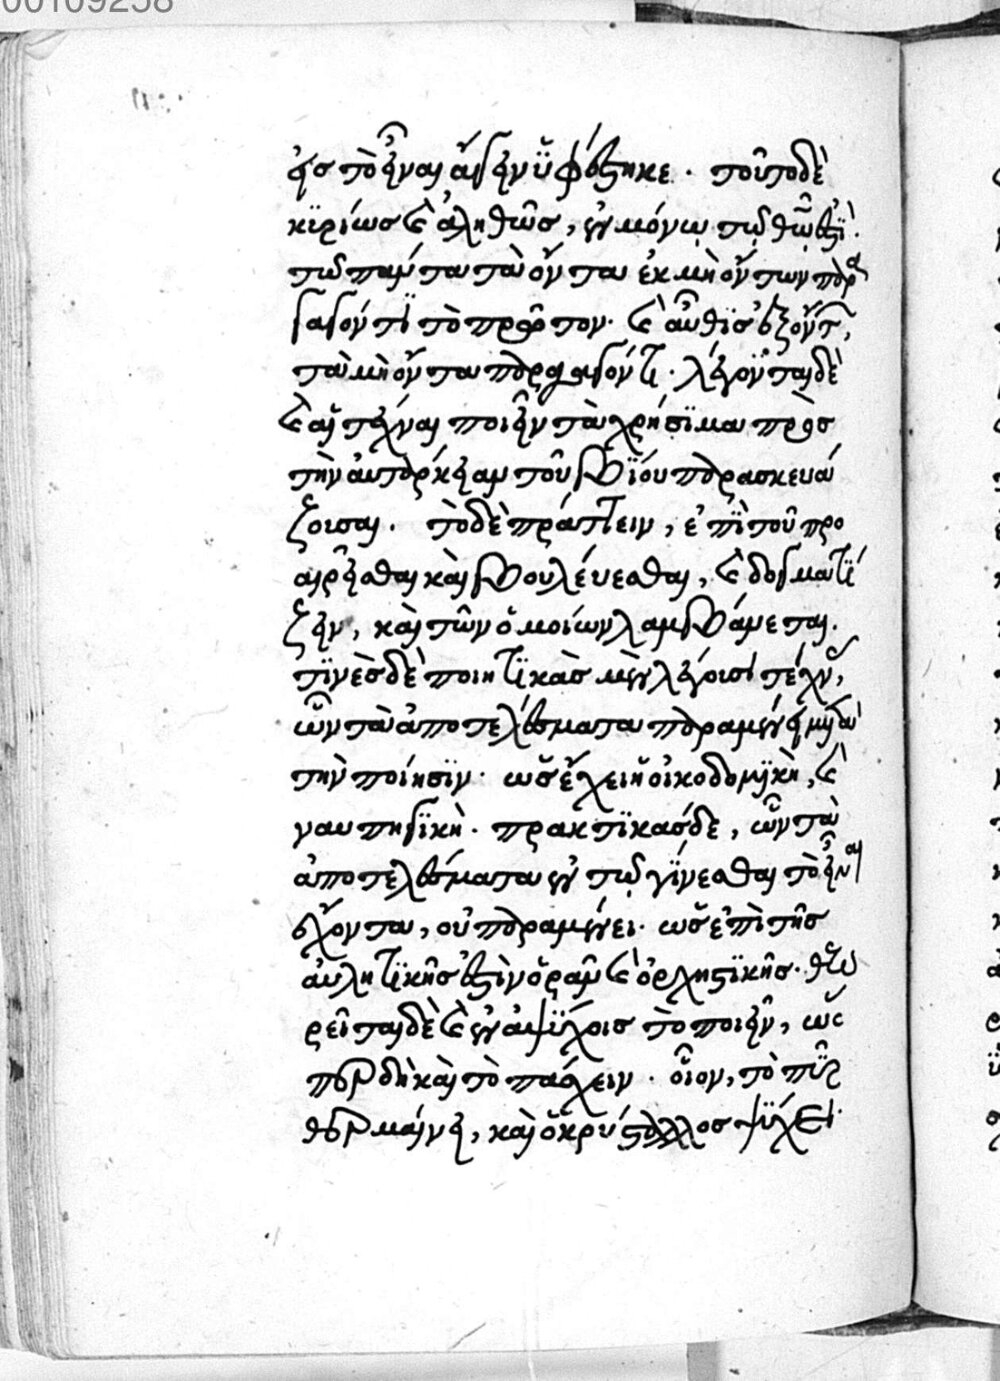 00109258
εἰς τὸ εἶναι ἄγειν ὑφέστηκε. τοῦτο δὲ
κϊρίως καὶ ἀληθῶς, ἐν μόνω τῷ θεῶ ἐστϊ.
τῶ πάντα τὰ ὄντα ἐκ μὴ ὄντων παρα
γαγόντϊ τὸ πρῶτον. καὶ αὖθϊς ἐξ ὄντων,
τὰ μὴ ὄντα παραγαγόντι. λέγονται δὲ
καὶ αἱ τέχναι ποιεῖν τὰ χρήσϊμα πρὸς
τὴν αὐτάρκειαν τοῦ βϊου παρασκευά
ζουσαι. τὸ δὲ πράττειν, ἐπϊ τοῦ προ
αιρεῖσθαι καὶ βουλέυεσθαι, καὶ δογματϊ
ζειν, καὶ τῶν ὁμοίων λαμβάνεται.
τϊνὲς δὲ ποιητϊκὰς μὲν λέγουσι τέχνας,
ὧν τὰ ἀποτελέσματα παραμένει μετὰ
τὴν ποίησϊν. ὡς ἔχει ἡ οἰκοδομϊκὴ, καὶ
ναυπηγϊκὴ. πρακτϊκὰς δε, ὧν τὰ
ἀποτελέσματα ἐν τῷ γϊνεσθαι τὸ εἶναι
ἔχοντα, οὐ παραμένει. ὡς ἐπὶ τῆς
ἀυλητϊκῆς ἐστὶν ὁρᾶν καὶ ὀρχηστϊκῆς. θεω
ρεῖται δὲ καὶ ἐν ἀψϋχοις τὸ ποιεῖν, ὥς
περ δὴ καὶ τὸ πάσχειν. οἷον, τὸ πῦρ
θερμαίνει, καὶ ὁ κρύσταλλος ψϋχει.